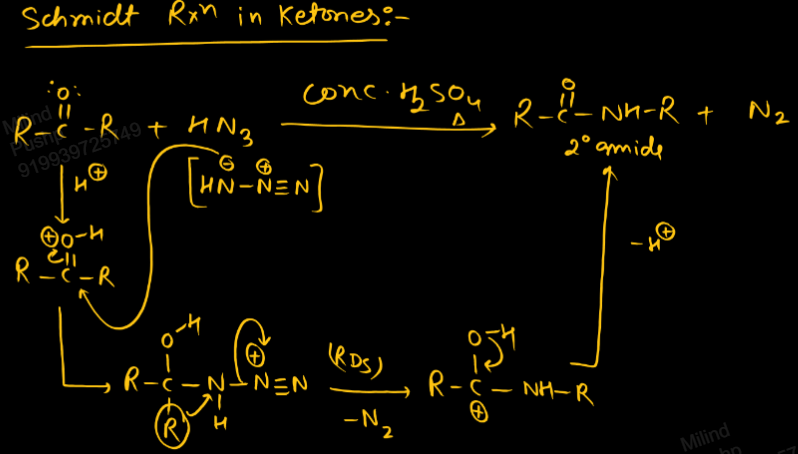 Schmidt Rxⁿ in Ketones:-
:O:
R-C-R + HN₃ conc. H₂SO₄ Δ R-C-NH-R + N₂
O
2° amide
[HN-N≡N]
⊖ ⊕
H⊕
⊕O-H
R-C-R
-H⊕
O-H
R-C-N-N≡N
⊕
R H
(RDS)
-N₂
O-H
R-C-NH-R
⊕
Milind
Pushp
919939725149
Milind